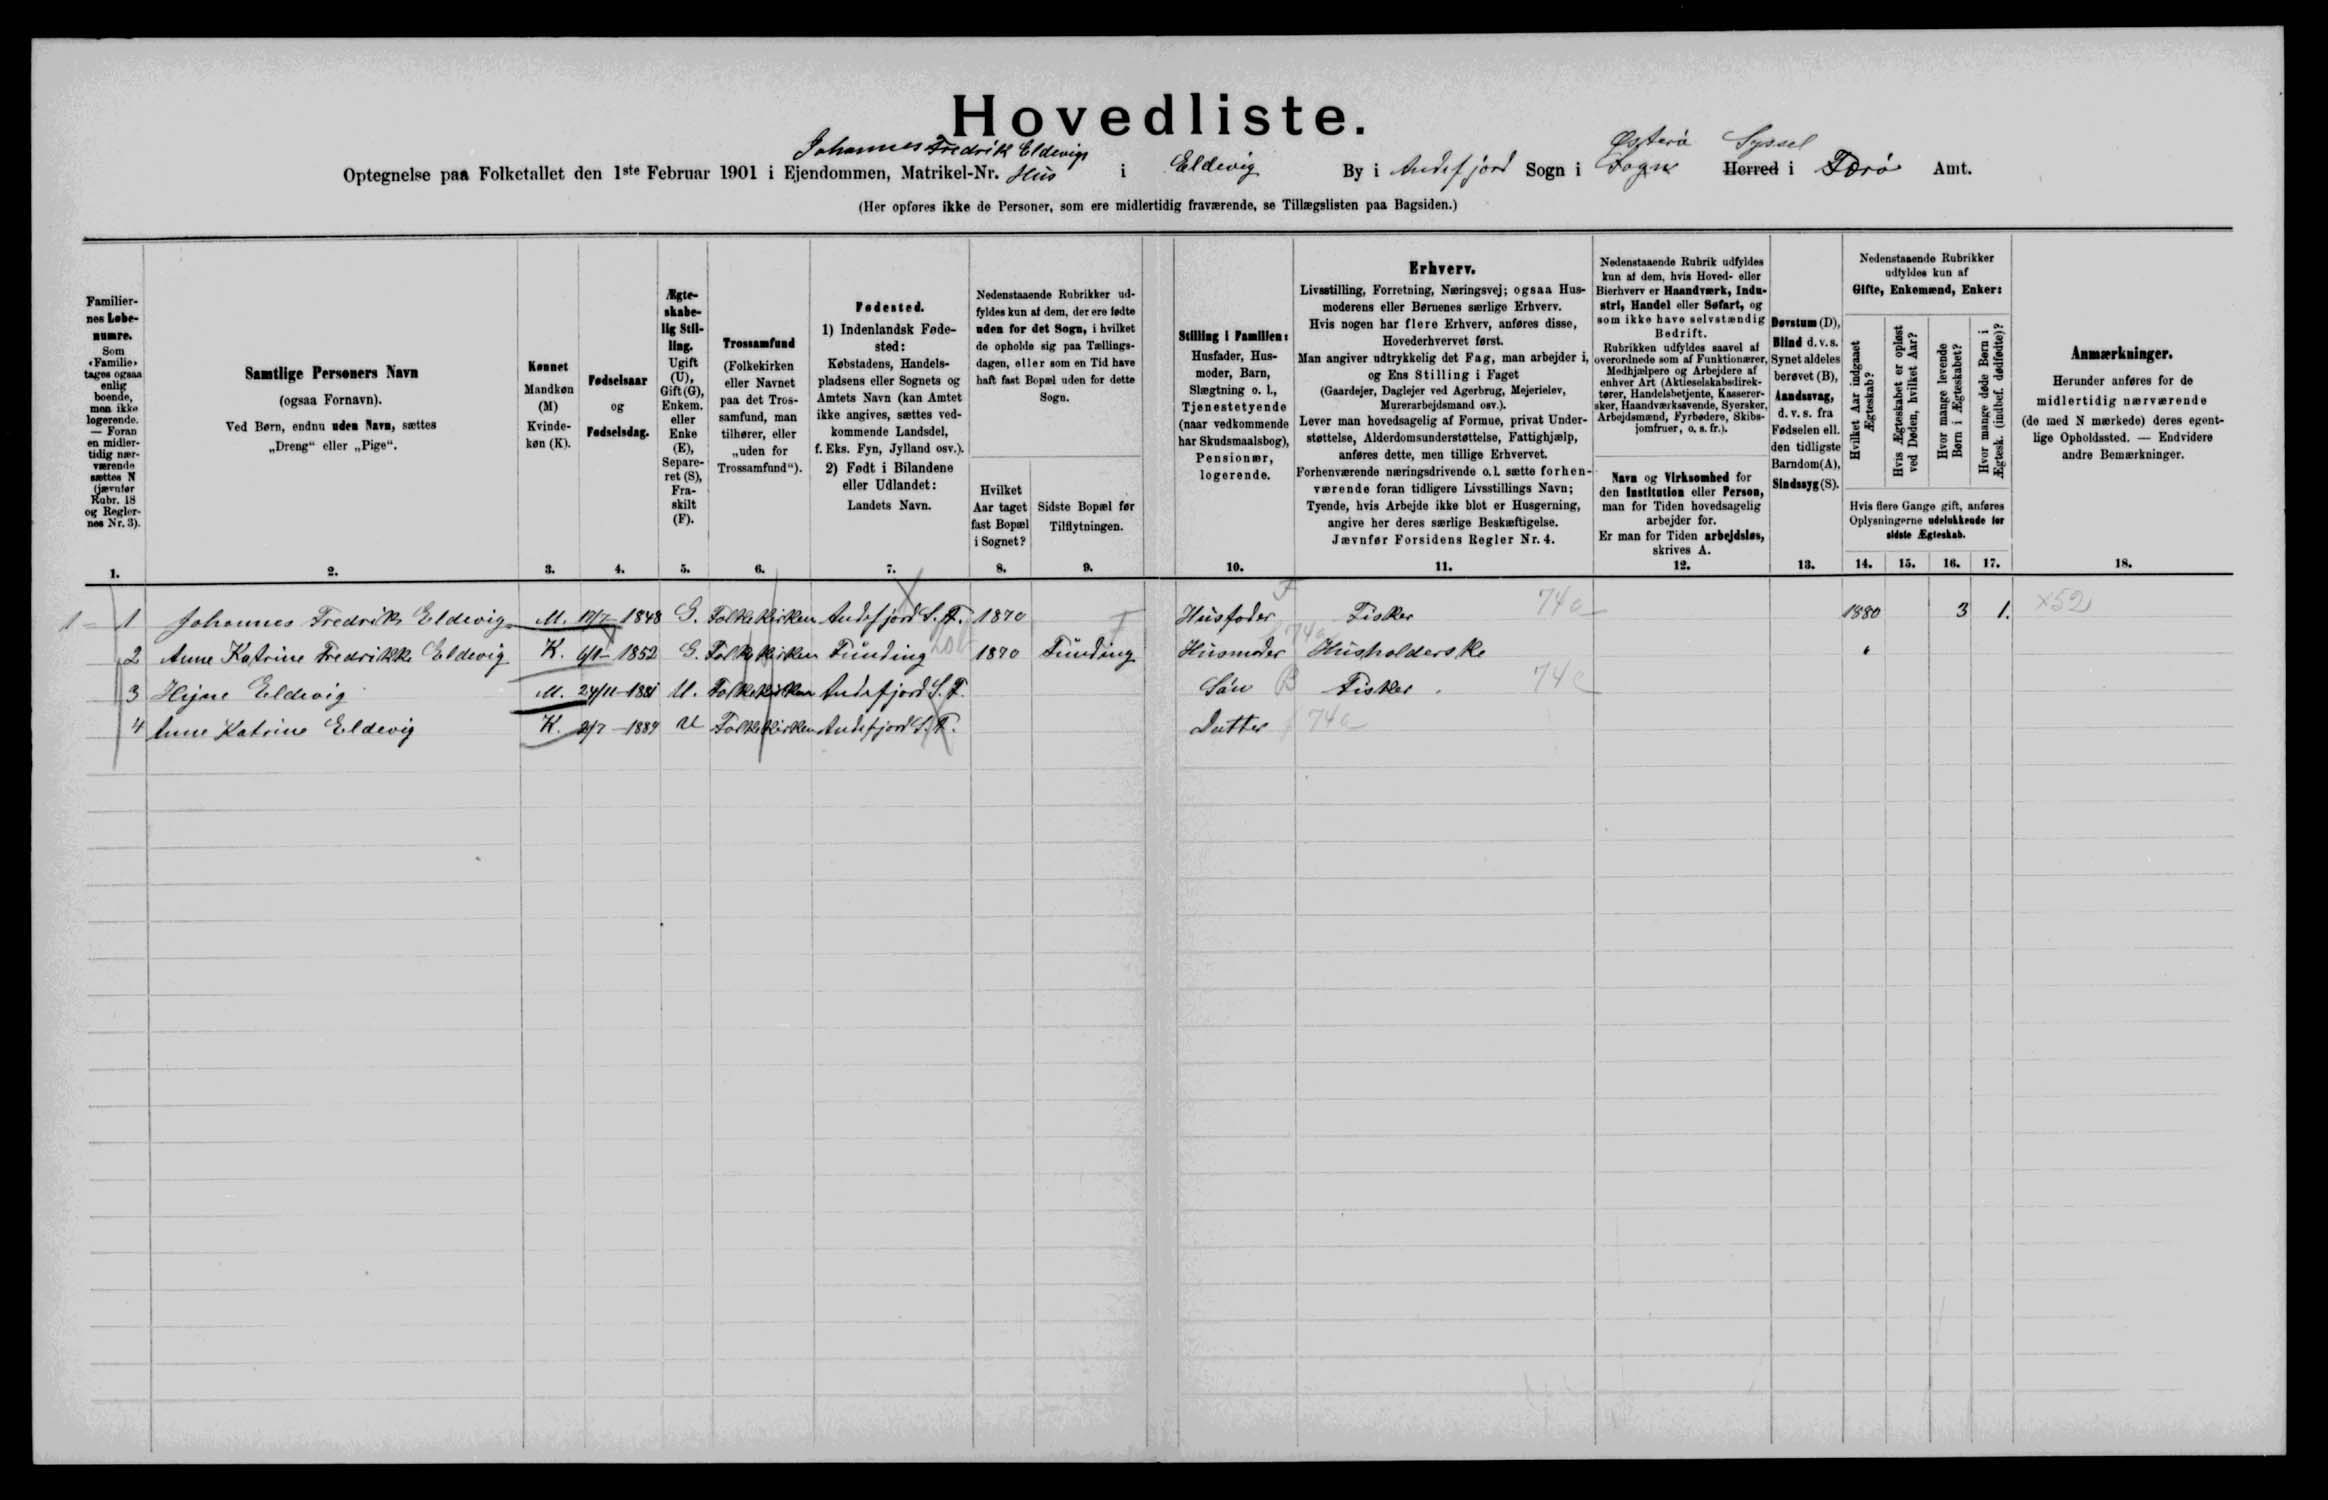 Hovedliste.
Johannes Fredrik Eldevigs
Østerø Syssel
Optegnelse paa Folketallet den 1ste Februar 1901 i Ejendommen, Matrikel-Nr. Hus i Eldevig By i Andefjord Sogn i Sogn Herred i Færø Amt.
(Her opføres ikke de Personer, som ere midlertidig fraværende, se Tillægslisten paa Bagsiden.)
Familier-
nes Løbe-
numre.
Som
«Familie»
tages ogsaa
enlig
boende,
men ikke
logerende.
— Foran
en midler-
tidig nær-
værende
sættes N
(jævnfør
Rubr. 18
og Regler-
nes Nr. 3).
1.
Samtlige Personers Navn
(ogsaa Fornavn).
Ved Børn, endnu uden Navn, sættes
„Dreng“ eller „Pige“.
2.
Kønnet
Mandkøn
(M)
Kvinde-
køn (K).
3.
Fødselsaar
og
Fødselsdag.
4.
Ægte-
skabe-
lig Stil-
ling.
Ugift
(U),
Gift (G),
Enkem.
eller
Enke
(E),
Separe-
ret (S),
Fra-
skilt
(F).
5.
Trossamfund
(Folkekirken
eller Navnet
paa det Tros-
samfund, man
tilhører, eller
„uden for
Trossamfund“).
6.
Fødested.
1) Indenlandsk Føde-
sted:
Købstadens, Handels-
pladsens eller Sognets og
Amtets Navn (kan Amtet
ikke angives, sættes ved-
kommende Landsdel,
f. Eks. Fyn, Jylland osv.).
2) Født i Bilandene
eller Udlandet:
Landets Navn.
7.
Nedenstaaende Rubrikker ud-
fyldes kun af dem, der ere fødte
uden for det Sogn, i hvilket
de opholde sig paa Tællings-
dagen, eller som en Tid have
haft fast Bopæl uden for dette
Sogn.
Hvilket
Aar taget
fast Bopæl
i Sognet?
8.
Sidste Bopæl før
Tilflytningen.
9.
Stilling i Familien:
Husfader, Hus-
moder, Barn,
Slægtning o. l.,
Tjenestetyende
(naar vedkommende
har Skudsmaalsbog),
Pensionær,
logerende.
10.
Erhverv.
Livsstilling, Forretning, Næringsvej; ogsaa Hus-
moderens eller Børnenes særlige Erhverv.
Hvis nogen har flere Erhverv, anføres disse,
Hovederhvervet først.
Man angiver udtrykkelig det Fag, man arbejder i,
og Ens Stilling i Faget
(Gaardejer, Daglejer ved Agerbrug, Mejerielev,
Murerarbejdsmand osv.).
Lever man hovedsagelig af Formue, privat Under-
støttelse, Alderdomsunderstøttelse, Fattighjælp,
anføres dette, men tillige Erhvervet.
Forhenværende næringsdrivende o. l. sætte forhen-
værende foran tidligere Livsstillings Navn;
Tyende, hvis Arbejde ikke blot er Husgerning,
angive her deres særlige Beskæftigelse.
Jævnfør Forsidens Regler Nr. 4.
11.
Nedenstaaende Rubrik udfyldes
kun af dem, hvis Hoved- eller
Bierhverv er Haandværk, Indu-
stri, Handel eller Søfart, og
som ikke have selvstændig
Bedrift.
Rubrikken udfyldes saavel af
overordnede som af Funktionærer,
Medhjælpere og Arbejdere af
enhver Art (Aktieselskabsdirek-
tører, Handelsbetjente, Kasserer-
sker, Haandværkssvende, Syersker,
Arbejdsmænd, Fyrbødere, Skibs-
jomfruer, o. s. fr.).
Navn og Virksomhed for
den Institution eller Person,
man for Tiden hovedsagelig
arbejder for.
Er man for Tiden arbejdsløs,
skrives A.
12.
Døvstum (D),
Blind d. v. s.
Synet aldeles
berøvet (B),
Aandssvag,
d. v. s. fra
Fødselen ell.
den tidligste
Barndom (A),
Sindssyg (S).
13.
Nedenstaaende Rubrikker
udfyldes kun af
Gifte, Enkemænd, Enker:
Hvilket Aar indgaaet
Ægteskab?
Hvis Ægteskabet er opløst
ved Døden, hvilket Aar?
Hvor mange levende
Børn i Ægteskabet?
Hvor mange døde Børn i
Ægtesk. (indbef. dødfødte)?
Hvis flere Gange gift, anføres
Oplysningerne udelukkende for
sidste Ægteskab.
14. 15. 16. 17.
Anmærkninger.
Herunder anføres for de
midlertidig nærværende
(de med N mærkede) deres egent-
lige Opholdssted. — Endvidere
andre Bemærkninger.
18.
1 1 Johannes Fredrik Eldevig M. 1848 G. Folkekirken Andefjord S. F. 1870 Husfader F Fisker 74a 1880 3 1. x52
2 Anne Katrine Fredrikke Eldevig K. 1852 G. Folkekirken Funding 1870 Funding Husmoder 74a Husholderske "
3 Hejne Eldevig M. 24/11-1881 U. Folkekirken Andefjord S. F. Søn B Fisker. 74c
4 Anne Katrine Eldevig K. 2/7-1889 U Folkekirken Andefjord S. F. Datter 74a